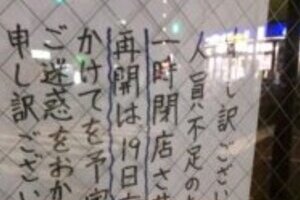 し訳ござい
人員不足の
一時閉店させ
再開は19日
かけてを予定
ご迷惑をおか
申し訳ござい